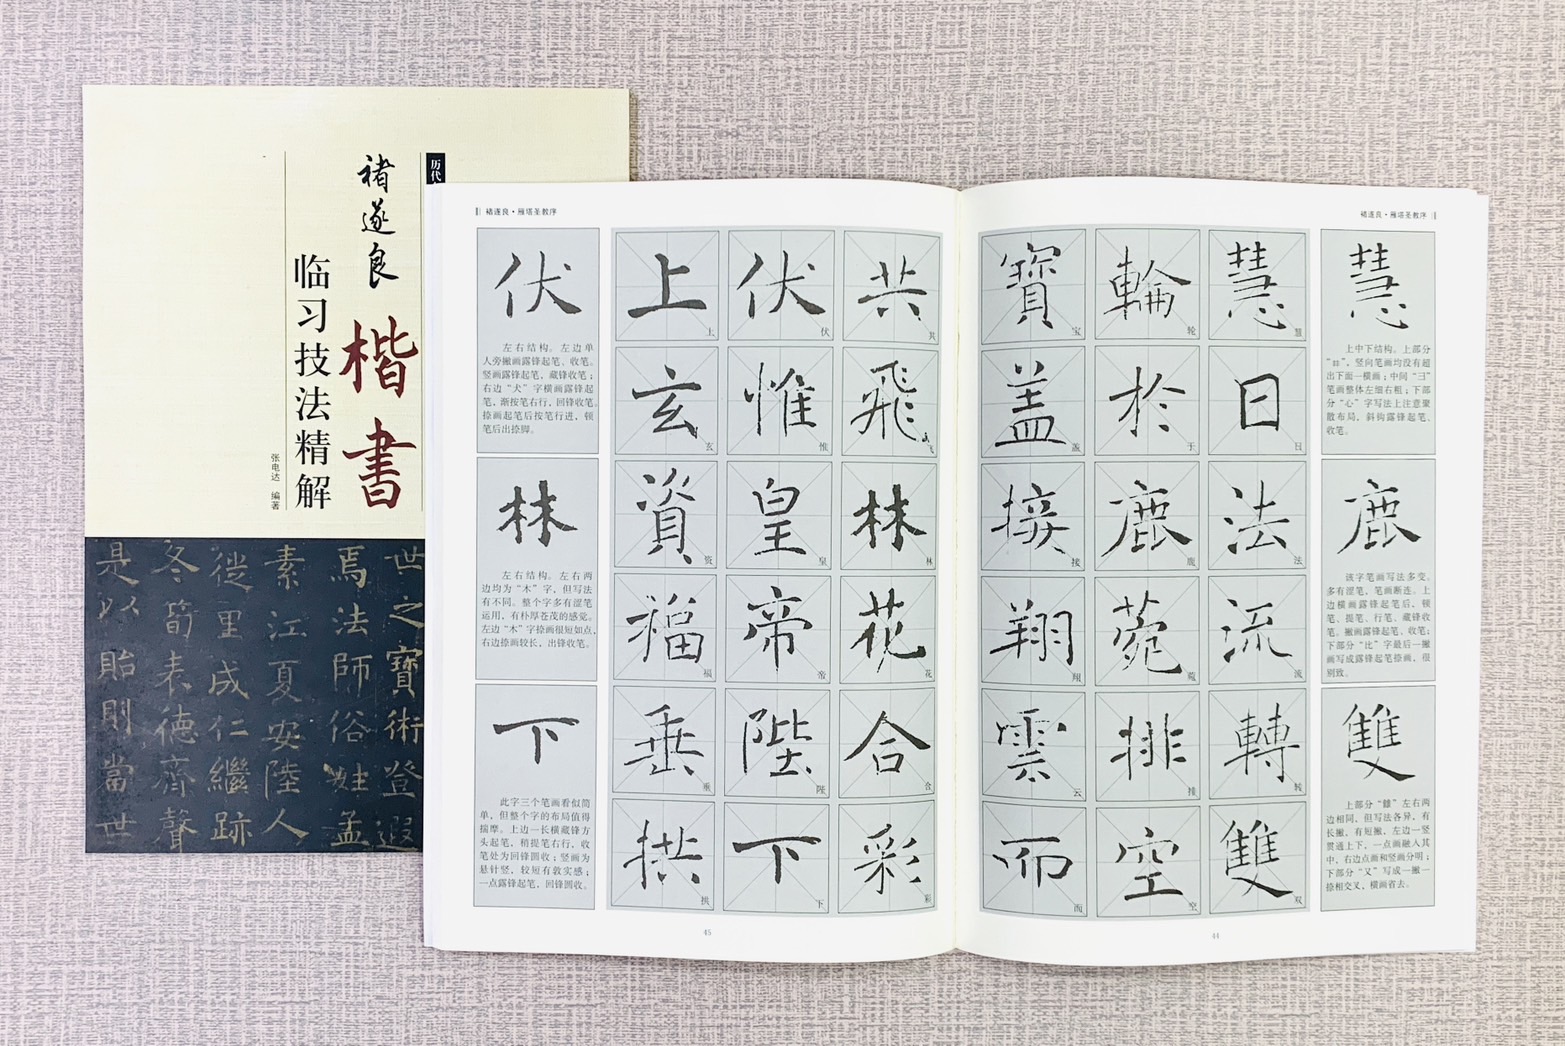 历代
褚遂良
楷书
临习技法精解
张电达 编著
世之寶術登遐
焉法師俗姓孟
素江夏安陸人
從里成仁繼跡
冬筍表德齊聲
是以貽則當世
褚遂良·雁塔圣教序
慧
上中下结构。上部分
“彗”,竖向笔画均没有超
出下面一横画;中间“彐”
笔画整体左细右粗;下部
分“心”字写法上注意聚
散布局,斜钩露锋起笔、
收笔。
鹿
该字笔画写法多变。
多有涩笔,笔画断连。上
边横画露锋起笔后,顿
笔、提笔、行笔、藏锋收
笔。撇画露锋起笔、收笔;
下部分“比”字最后一撇
画写成露锋起笔捺画,很
别致。
雙
上部分“雔”左右两
边相同,但写法各异,有
长撇,有短撇,左边一竖
贯通上下,一点画融入其
中,右边点画和竖画分明;
下部分“又”写成一撇一
捺相交叉,横画省去。
慧 慧
日 日
法 法
流 流
轉 转
雙 双
輪 轮
於 于
鹿 鹿
菀 菀
排 排
空 空
寶 宝
盖 盖
接 接
翔 翔
雲 云
而 而
44
褚遂良·雁塔圣教序
共 共
飛 飞
林 林
花 花
合 合
彩 彩
伏 伏
惟 惟
皇 皇
帝 帝
陛 陛
下 下
上 上
玄 玄
資 资
福 福
垂 垂
拱 拱
伏
左右结构。左边单
人旁撇画露锋起笔、收笔。
竖画露锋起笔,藏锋收笔;
右边“犬”字横画露锋起
笔,渐按笔右行,回锋收笔。
捺画起笔后按笔行进,顿
笔后出捺脚。
林
左右结构。左右两
边均为“木”字,但写法
有不同。整个字多有涩笔
运用,有朴厚苍茂的感觉。
左边“木”字捺画很短如点,
右边捺画较长,出锋收笔。
下
此字三个笔画看似简
单,但整个字的布局值得
揣摩。上边一长横藏锋方
头起笔,稍提笔右行,收
笔处为回锋圆收;竖画为
悬针竖,较短有敦实感;
一点露锋起笔,回锋圆收。
45